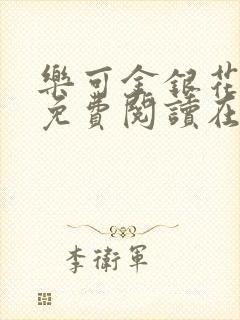 樂可金銀花
免費閱讀在
李衛軍